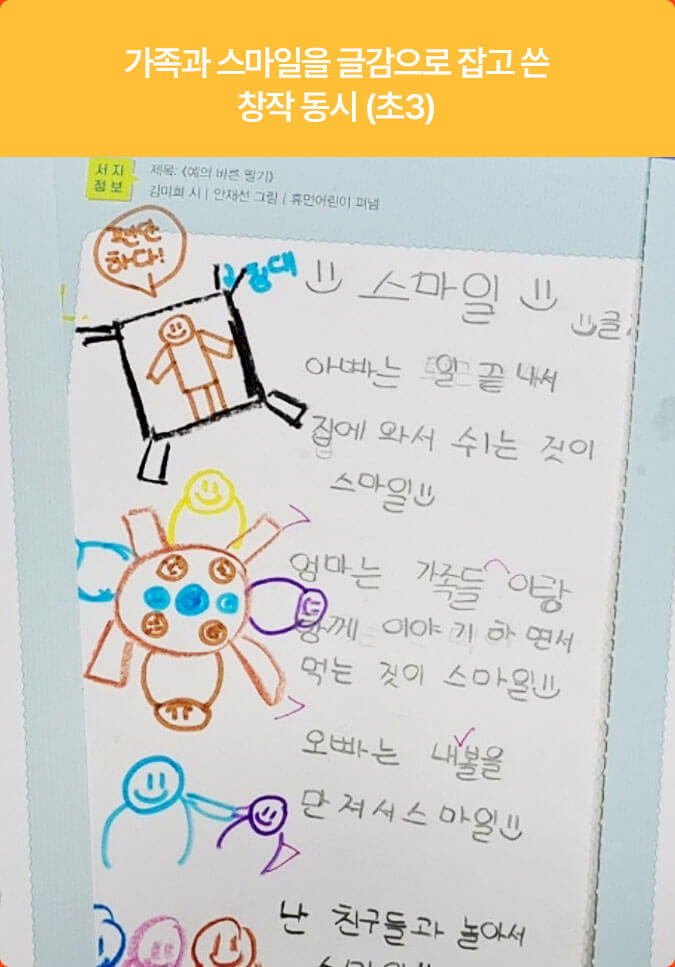 가족과 스마일을 글감으로 잡고 쓴
창작 동시 (초3)
서지
정보
제목: 《예의 바른 딸기》
김미희 시 | 안재선 그림 | 휴먼어린이 펴냄
편안
하다!
침대
스마일
글
아빠는 일 끝내서
집에 와서 쉬는 것이
스마일
엄마는 가족들이랑
함께 이야기하면서
먹는 것이 스마일
오빠는 내볼을
만져서 스마일
난 친구들과 놀아서